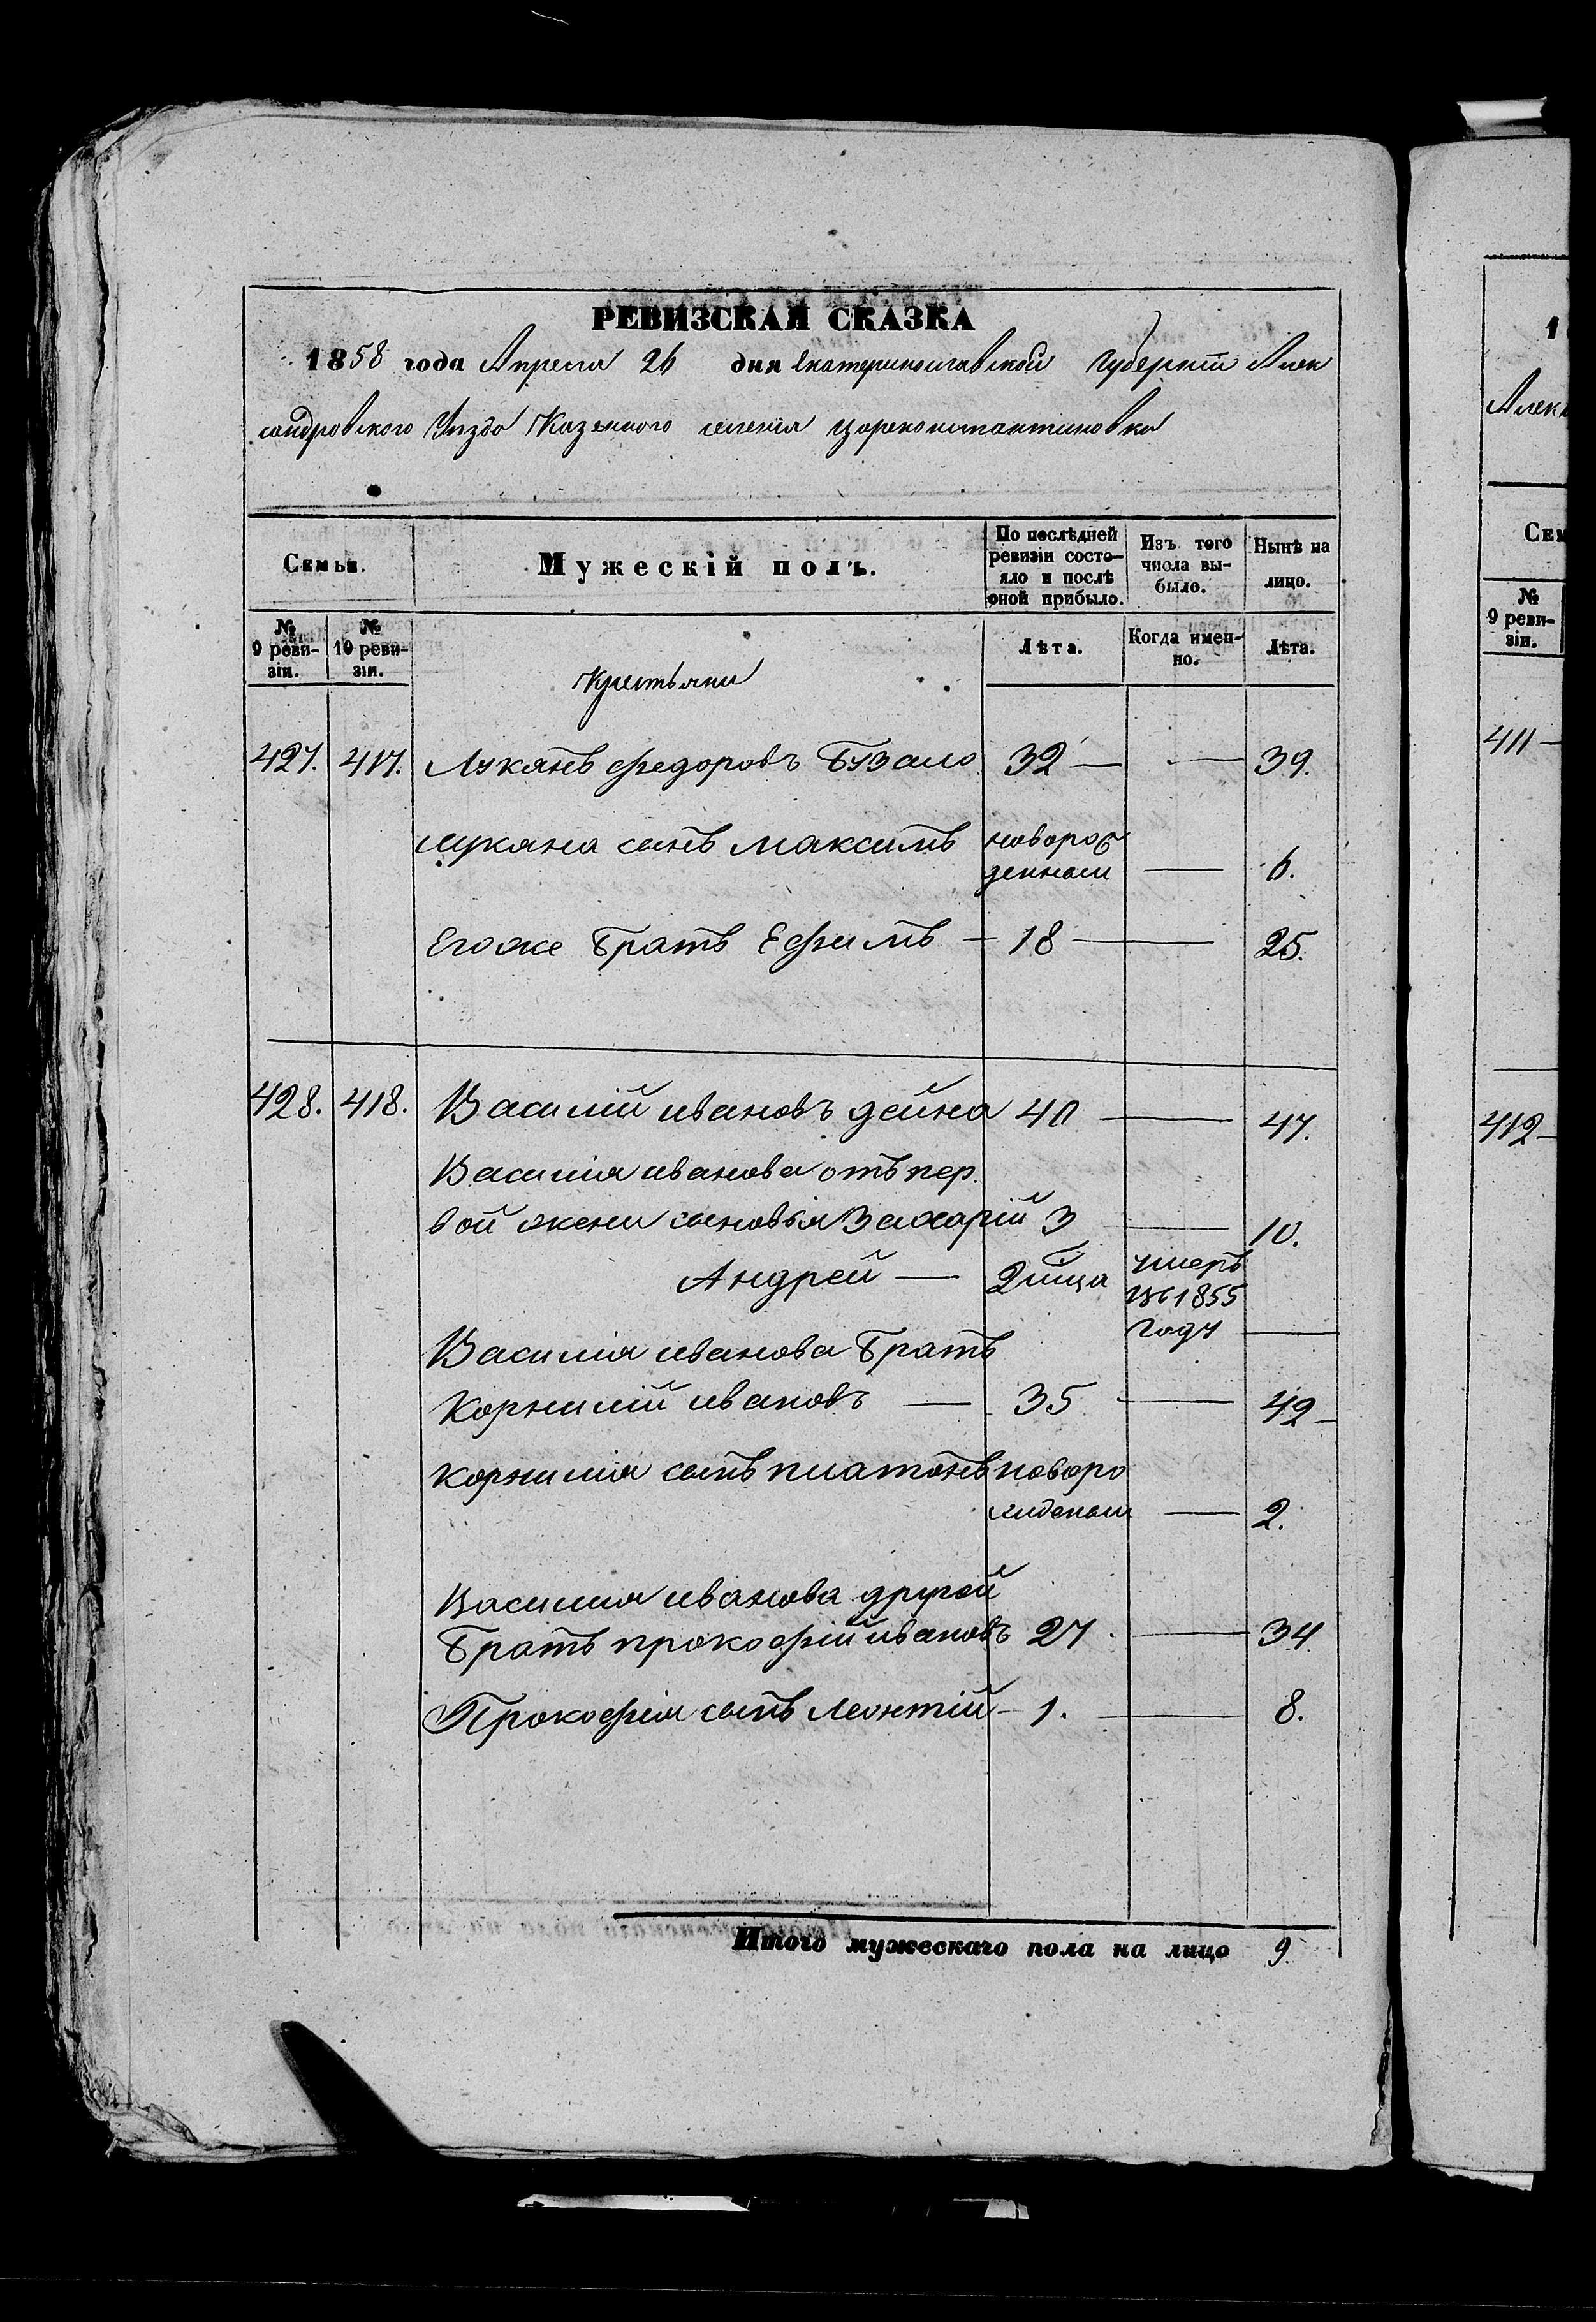 РЕВИЗСКАЯ СКАЗКА
1858 года Апреля 26 дня Екатеринославской Губернiи Алек
сандровского Уезда Казенного селенiя Цареконстантиновки
Семьи.
Мужескiй полъ.
По послѣдней ревизiи состо-
яло и послѣ оной прибыло.
Изъ того числа вы-
было.
Нынѣ на лицо.
№ 9 реви-
зiи.
№ 10 реви-
зiи.
Лѣта.
Когда имен-
но.
Лѣта.
Крестьяни
427. 417. Лукянъ федоровъ Бузало 32 — — 39.
лукяна сынъ максимъ новорож
денный — 6.
Егоже Братъ Ефимъ — 18 — 25.
428. 418. Василiй ивановъ дейна 40 — 47.
Василiя иванова отъ пер
вой жени сыновья Захарiй 3 — 10.
Андрей — 2 мца умеръ
въ 1855
году —
Василiя иванова Братъ
Корнилiй ивановъ — 35 — 42
Корнилiя сынъ платонъ новоро
жденый — 2.
Василия иванова другой
Братъ прокофiй ивановъ 27. — 34
Прокофiя сынъ Леонтiй 1. — 8.
Итого мужескаго пола на лицо 9
1
Алек
Сем
№ 9 реви-
зiи.
411
412